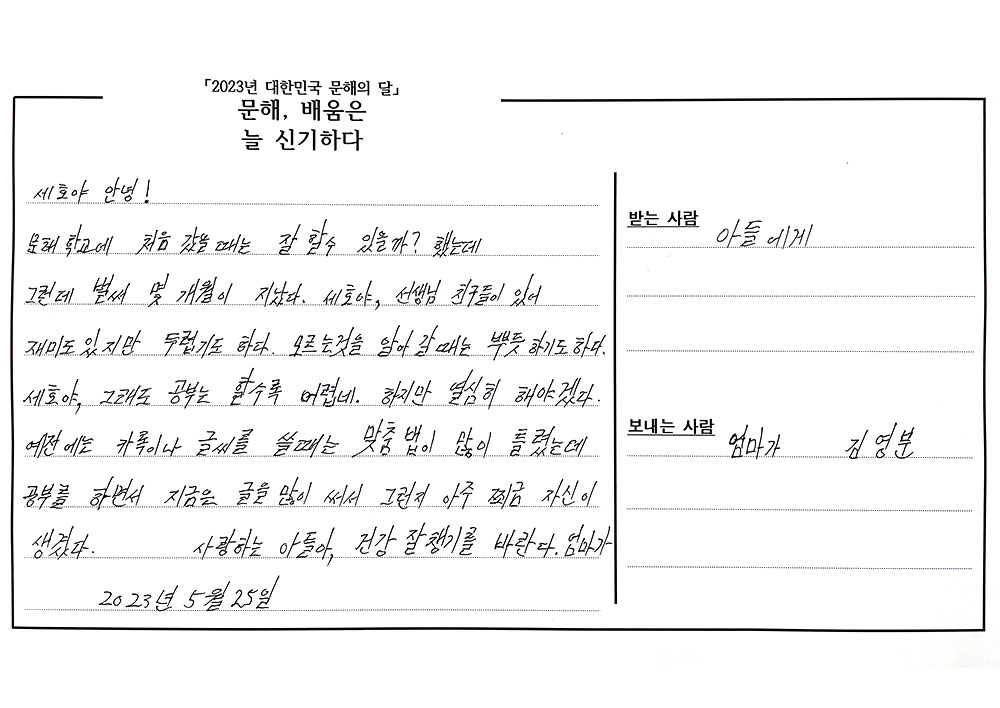 「2023년 대한민국 문해의 달」
문해, 배움은
늘 신기하다
세호야 안녕!
문해 학교에 처음 갔을 때는 잘 할수 있을까? 했는데
그런데 벌써 몇 개월이 지났다. 세호야, 선생님 친구들이 있어
재미도 있지만 두렵기도 하다. 모르는것을 알아 갈 때는 뿌듯 하기도 하다.
세호야, 그래도 공부는 할수록 어렵네. 하지만 열심히 해야겠다.
예전에는 카톡이나 글씨를 쓸때는 맞춤법이 많이 틀렸는데
공부를 하면서 지금은 글을 많이 써서 그런지 아주 쪼금 자신이
생겼다. 사랑하는 아들아, 건강 잘챙기를 바란다. 엄마가
2023년 5월 25일
받는 사람
아들에게
보내는 사람
엄마가 김영분